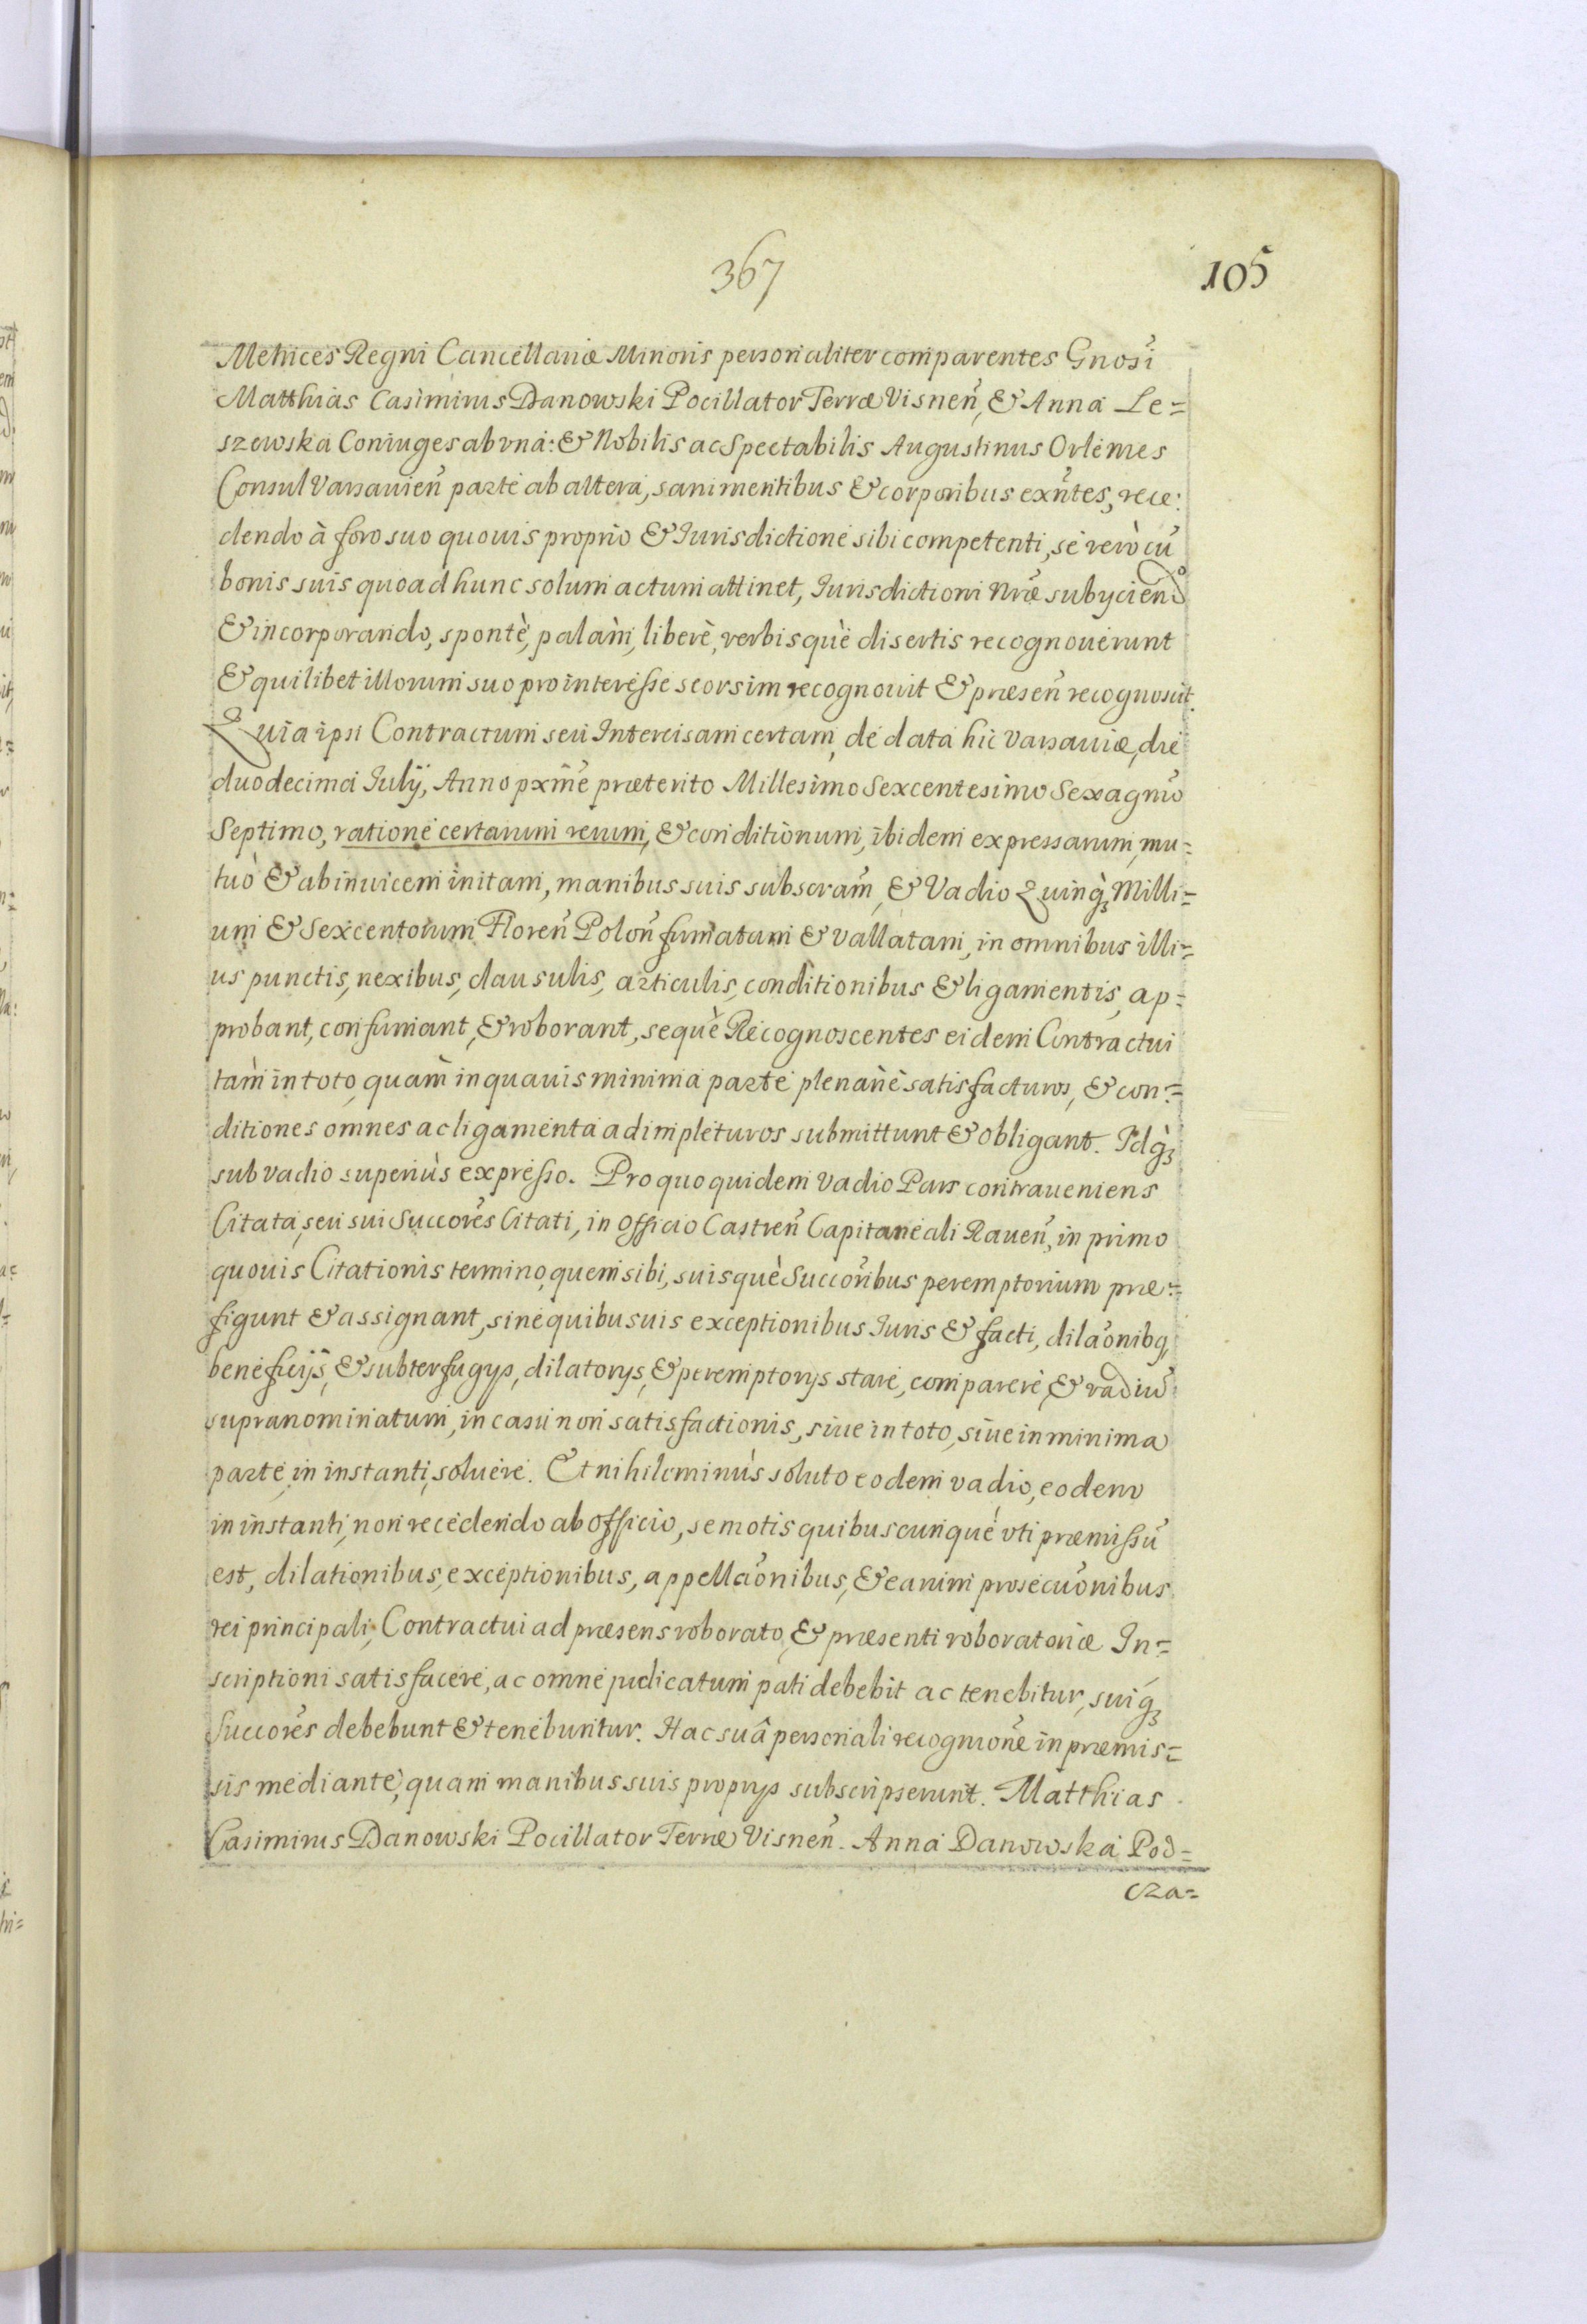 367
105
Metrices Regni Cancellariæ Minoris personaliter comparentes Gnosi
Matthias Casimirus Danowski Pocillator Terræ Visnen, & Anna Le=
szewska Coniuges ab vna: & Nobilis ac Spectabilis Augustinus Orlemes
Consul Varsauien parte ab altera, sani mentibus & corporibus exntes, rece:
dendo à foro suo quouis proprio & Jurisdictione sibi competenti, se verò cu
bonis suis quoad hunc solum actum attinet, Jurisdictioni Nræ subyciend
& incorporando, spontè, palàm, liberè, verbisquè disertis recognouerunt
& quilibet illorum suo pro interesse seorsim recognouit & præsen recognoscit.
Quia ipsi Contractum seu Intercisam certam, de data hic Varsauiæ, die
duodecima July, Anno pxme præterito Millesimo Sexcentesimo Sexagmo
Septimo, ratione certarum rerum, & conditionum, ibidem expressarum, mu=
tuò & ab inuicem initam, manibus suis subscram, & Vadio Quinq Milli=
um & Sexcentorum Floren Polon firmatam & vallatam, in omnibus illi=
us punctis, nexibus, clausulis, articulis, conditionibus & ligamentis, ap=
probant, confirmant, & roborant, sequè Recognoscentes eidem Contractui
tàm in toto, quàm in quauis minima parte plenariè satisfacturos, & con=
ditiones omnes ac ligamenta adimpleturos submittunt & obligant. Idq
sub vadio superiùs expresso. Pro quo quidem Vadio Pars contraueniens
Citata, seu sui Succores Citati, in Officio Castren Capitaneali Rauen, in primo
quouis Citationis termino, quem sibi, suisquè Succoribus peremptorium præ=
figunt & assignant, sine quibusuis exceptionibus Juris & facti, dilaonibq
beneficijs, & subterfugys, dilatorys, & peremptorys stare, comparere, & vadiu
supranominatum, in casu non satisfactionis, siue in toto, siue in minima
parte, in instanti, soluere. Et nihilominùs soluto eodem vadio, eodem
in instanti, non recedendo ab officio, semotis quibuscunquè vti præmissu
est, dilationibus, exceptionibus, appellaonibus, & earum prosecuonibus
rei principali, Contractui ad præsens roborato, & præsenti roboratoriæ In=
scriptioni satisfacere, ac omne judicatum pati debebit ac tenebitur, suiq
succores debebunt & tenebuntur. Hac suâ personali recognione in præmis=
sis mediante, quam manibus suis proprys subscripserunt. Matthias
Casimirus Danowski Pocillator Terræ Visnen. Anna Danowska Pod=
cza=